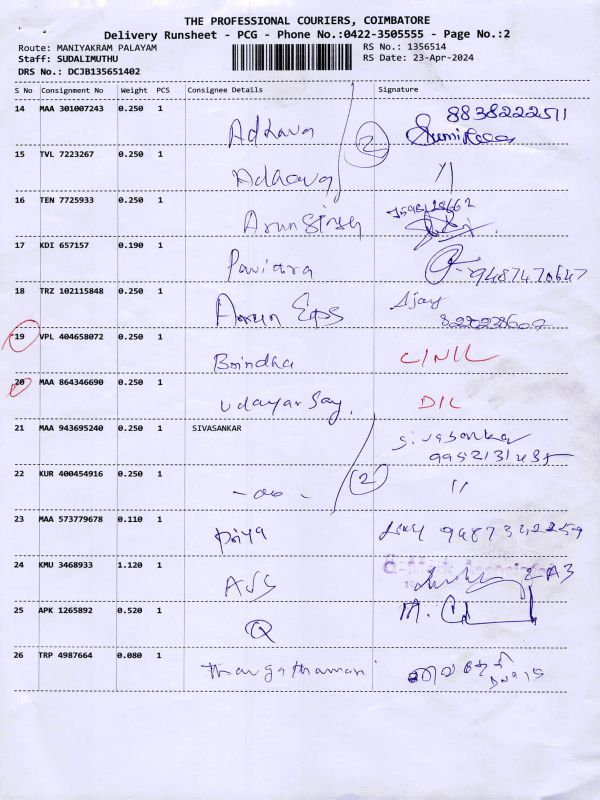 THE PROFESSIONAL COURIERS, COIMBATORE
Delivery Runsheet - PCG - Phone No.:0422-3505555 - Page No.:2
Route: MANIYAKRAM PALAYAM RS No.: 1356514
Staff: SUDALIMUTHU RS Date: 23-Apr-2024
DRS No.: DCJB135651402
S No Consignment No Weight PCS Consignee Details Signature
14 MAA 301007243 0.250 1 8838222511
2
15 TVL 7223267 0.250 1 "
16 TEN 7725933 0.250 1 Arun Singh
17 KDI 657157 0.190 1 Pavithra 9487470647
18 TRZ 102115848 0.250 1 Arun Eps Ajay
19 VPL 404658072 0.250 1 Boindha
20 MAA 864346690 0.250 1 D/L
21 MAA 943695240 0.250 1 SIVASANKAR Sivasankar
22 KUR 400454916 0.250 1 -do- 2 "
23 MAA 573779678 0.110 1 Priya
24 KMU 3468933 1.120 1
25 APK 1265892 0.520 1 Q
26 TRP 4987664 0.080 1